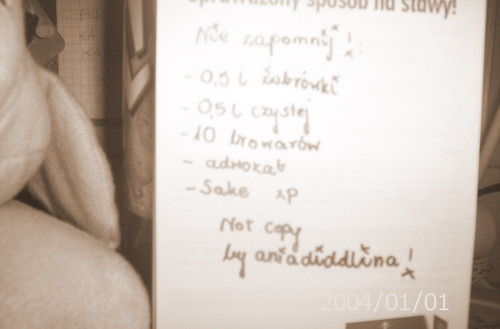 Sprawdzony sposób na stawy!
Nie zapomnij!
- 0,5 l żubrówki
- 0,5 l czystej
- 10 browarów
- adwokat
- Sake xp
Not copy
by aniadiddlina!
2004/01/01